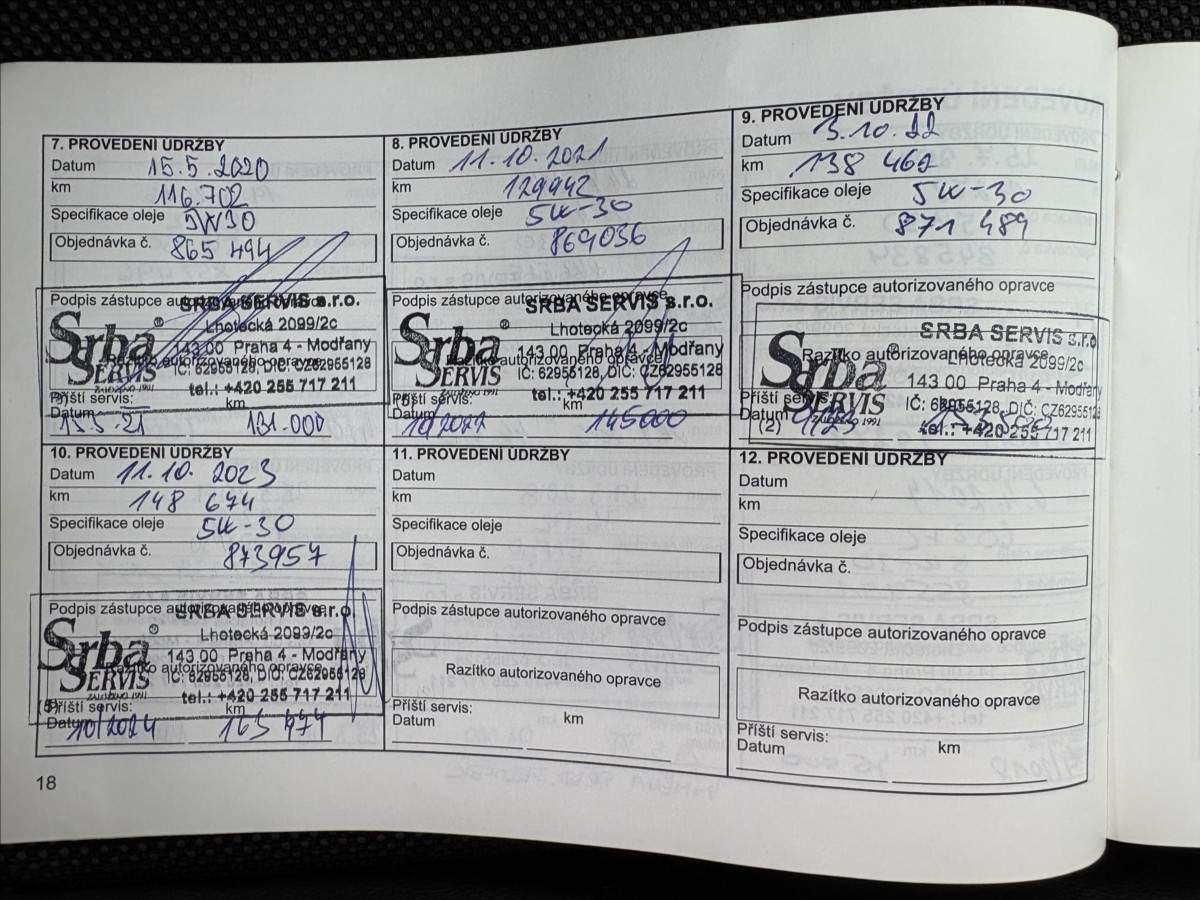 7. PROVEDENÍ ÚDRŽBY
Datum 15.5.2020
km 116.702
Specifikace oleje 5W30
Objednávka č. 865 494
Podpis zástupce autorizovaného opravce
SRBA SERVIS s.r.o.
Srba SERVIS ®
ZALOŽENO 1991
Lhotecká 2099/2c
143 00 Praha 4 - Modřany
Razítko autorizovaného opravce
IČ: 62955128, DIČ: CZ62955128
tel.: +420 255 717 211
Příští servis:
Datum 15.5.21 km 131.000
8. PROVEDENÍ ÚDRŽBY
Datum 11.10.2021
km 129942
Specifikace oleje 5W-30
Objednávka č. 869036
Podpis zástupce autorizovaného opravce
SRBA SERVIS s.r.o.
Srba SERVIS ®
ZALOŽENO 1991
Lhotecká 2099/2c
143 00 Praha 4 - Modřany
Razítko autorizovaného opravce
IČ: 62955128, DIČ: CZ62955128
tel.: +420 255 717 211
Příští servis:
Datum 10/2022 km 145000
9. PROVEDENÍ ÚDRŽBY
Datum 3.10.22
km 138 462
Specifikace oleje 5W-30
Objednávka č. 871 489
Podpis zástupce autorizovaného opravce
SRBA SERVIS s.r.o.
Srba SERVIS ®
1991
Razítko autorizovaného opravce
Lhotecká 2099/2c
143 00 Praha 4 - Modřany
IČ: 62955128, DIČ: CZ62955128
tel.: +420 255 717 211
Příští servis:
Datum
(2)
10. PROVEDENÍ ÚDRŽBY
Datum 11.10.2023
km 148 674
Specifikace oleje 5W-30
Objednávka č. 873957
Podpis zástupce autorizovaného opravce
SRBA SERVIS s.r.o.
Srba SERVIS ®
ZALOŽENO 1991
Lhotecká 2099/2c
143 00 Praha 4 - Modřany
Razítko autorizovaného opravce
IČ: 62955128, DIČ: CZ62955128
tel.: +420 255 717 211
Příští servis:
Datum 10/2024 km
11. PROVEDENÍ ÚDRŽBY
Datum
km
Specifikace oleje
Objednávka č.
Podpis zástupce autorizovaného opravce
Razítko autorizovaného opravce
Příští servis:
Datum km
12. PROVEDENÍ ÚDRŽBY
Datum
km
Specifikace oleje
Objednávka č.
Podpis zástupce autorizovaného opravce
Razítko autorizovaného opravce
Příští servis:
Datum km
18